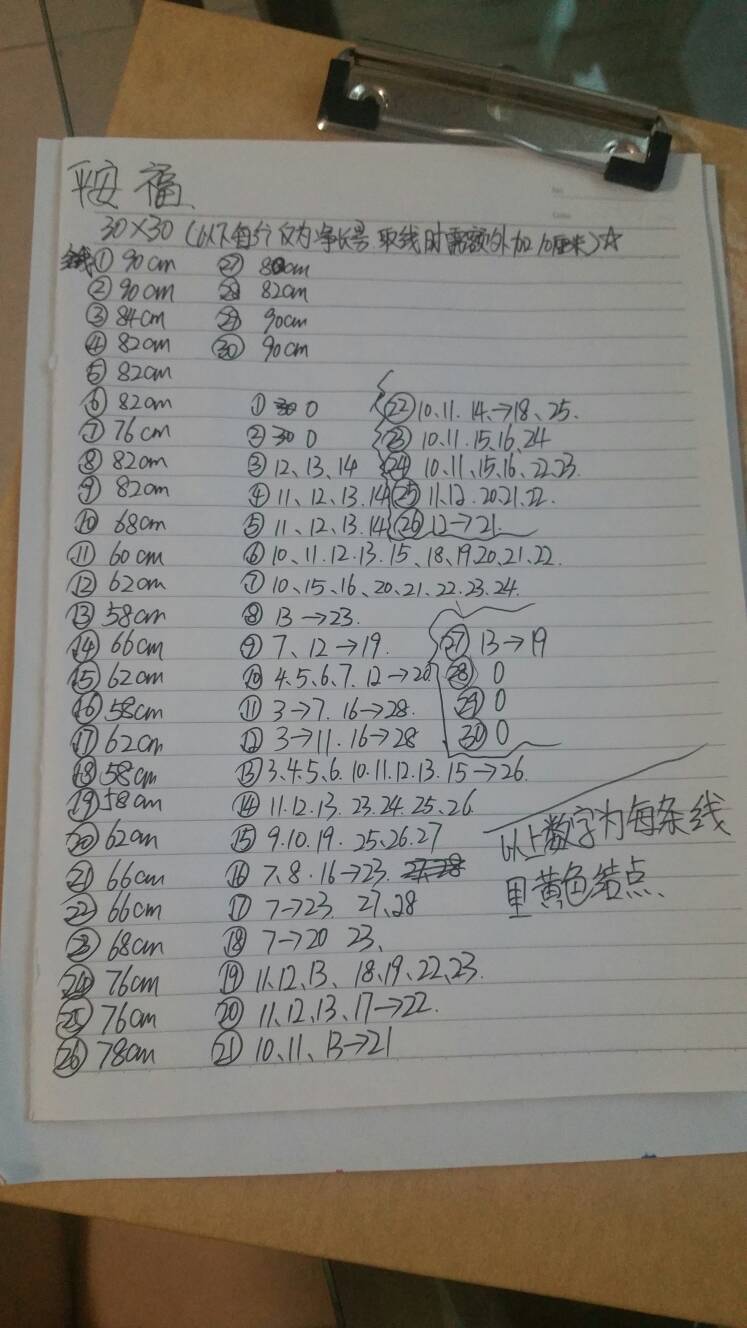 平安福、
30×30（以下每个仅为净长号 取线时需额外加10厘米）☆
① 90cm ㉗ 80cm
② 90cm ㉘ 82cm
③ 84cm ㉙ 90cm
④ 82cm ㉚ 90cm
⑤ 82cm
⑥ 82cm ① 0 ㉒ 10、11、14、→18、25.
⑦ 76cm ② 0 ㉓ 10.11.15.16、24
⑧ 82cm ③ 12、13、14 ㉔ 10、11、15、16、22、23.
⑨ 82cm ④ 11、12、13.14 ㉕ 11.12.20.21.22.
⑩ 68cm ⑤ 11、12、13.14 ㉖ 12→21.
⑪ 60cm ⑥ 10、11.12.13.15、18、19.20、21、22.
⑫ 62cm ⑦ 10、15、16、20、21、22.23.24.
⑬ 58cm ⑧ 13→23.
⑭ 66cm ⑨ 7、12→19. ㉗ 13→19
⑮ 62cm ⑩ 4.5、6、7.12→20 ㉘ 0
⑯ 58cm ⑪ 3→7.16→28. ㉙ 0
⑰ 62cm ⑫ 3→11.16→28 ㉚ 0
⑱ 58cm ⑬ 3.4.5.6.10.11.12.13.15→26.
⑲ 58cm ⑭ 11.12.13.23.24.25、26
⑳ 62cm ⑮ 9.10.19.25.26.27
㉑ 66cm ⑯ 7、8.16→23. 27.28
㉒ 66cm ⑰ 7→23 27、28
㉓ 68cm ⑱ 7→20 23、
㉔ 76cm ⑲ 11、12、13、18、19、22、23.
㉕ 76cm ⑳ 11、12、13、17→22.
㉖ 78cm ㉑ 10、11、13→21
以上数字为每条线
里黄色结点、